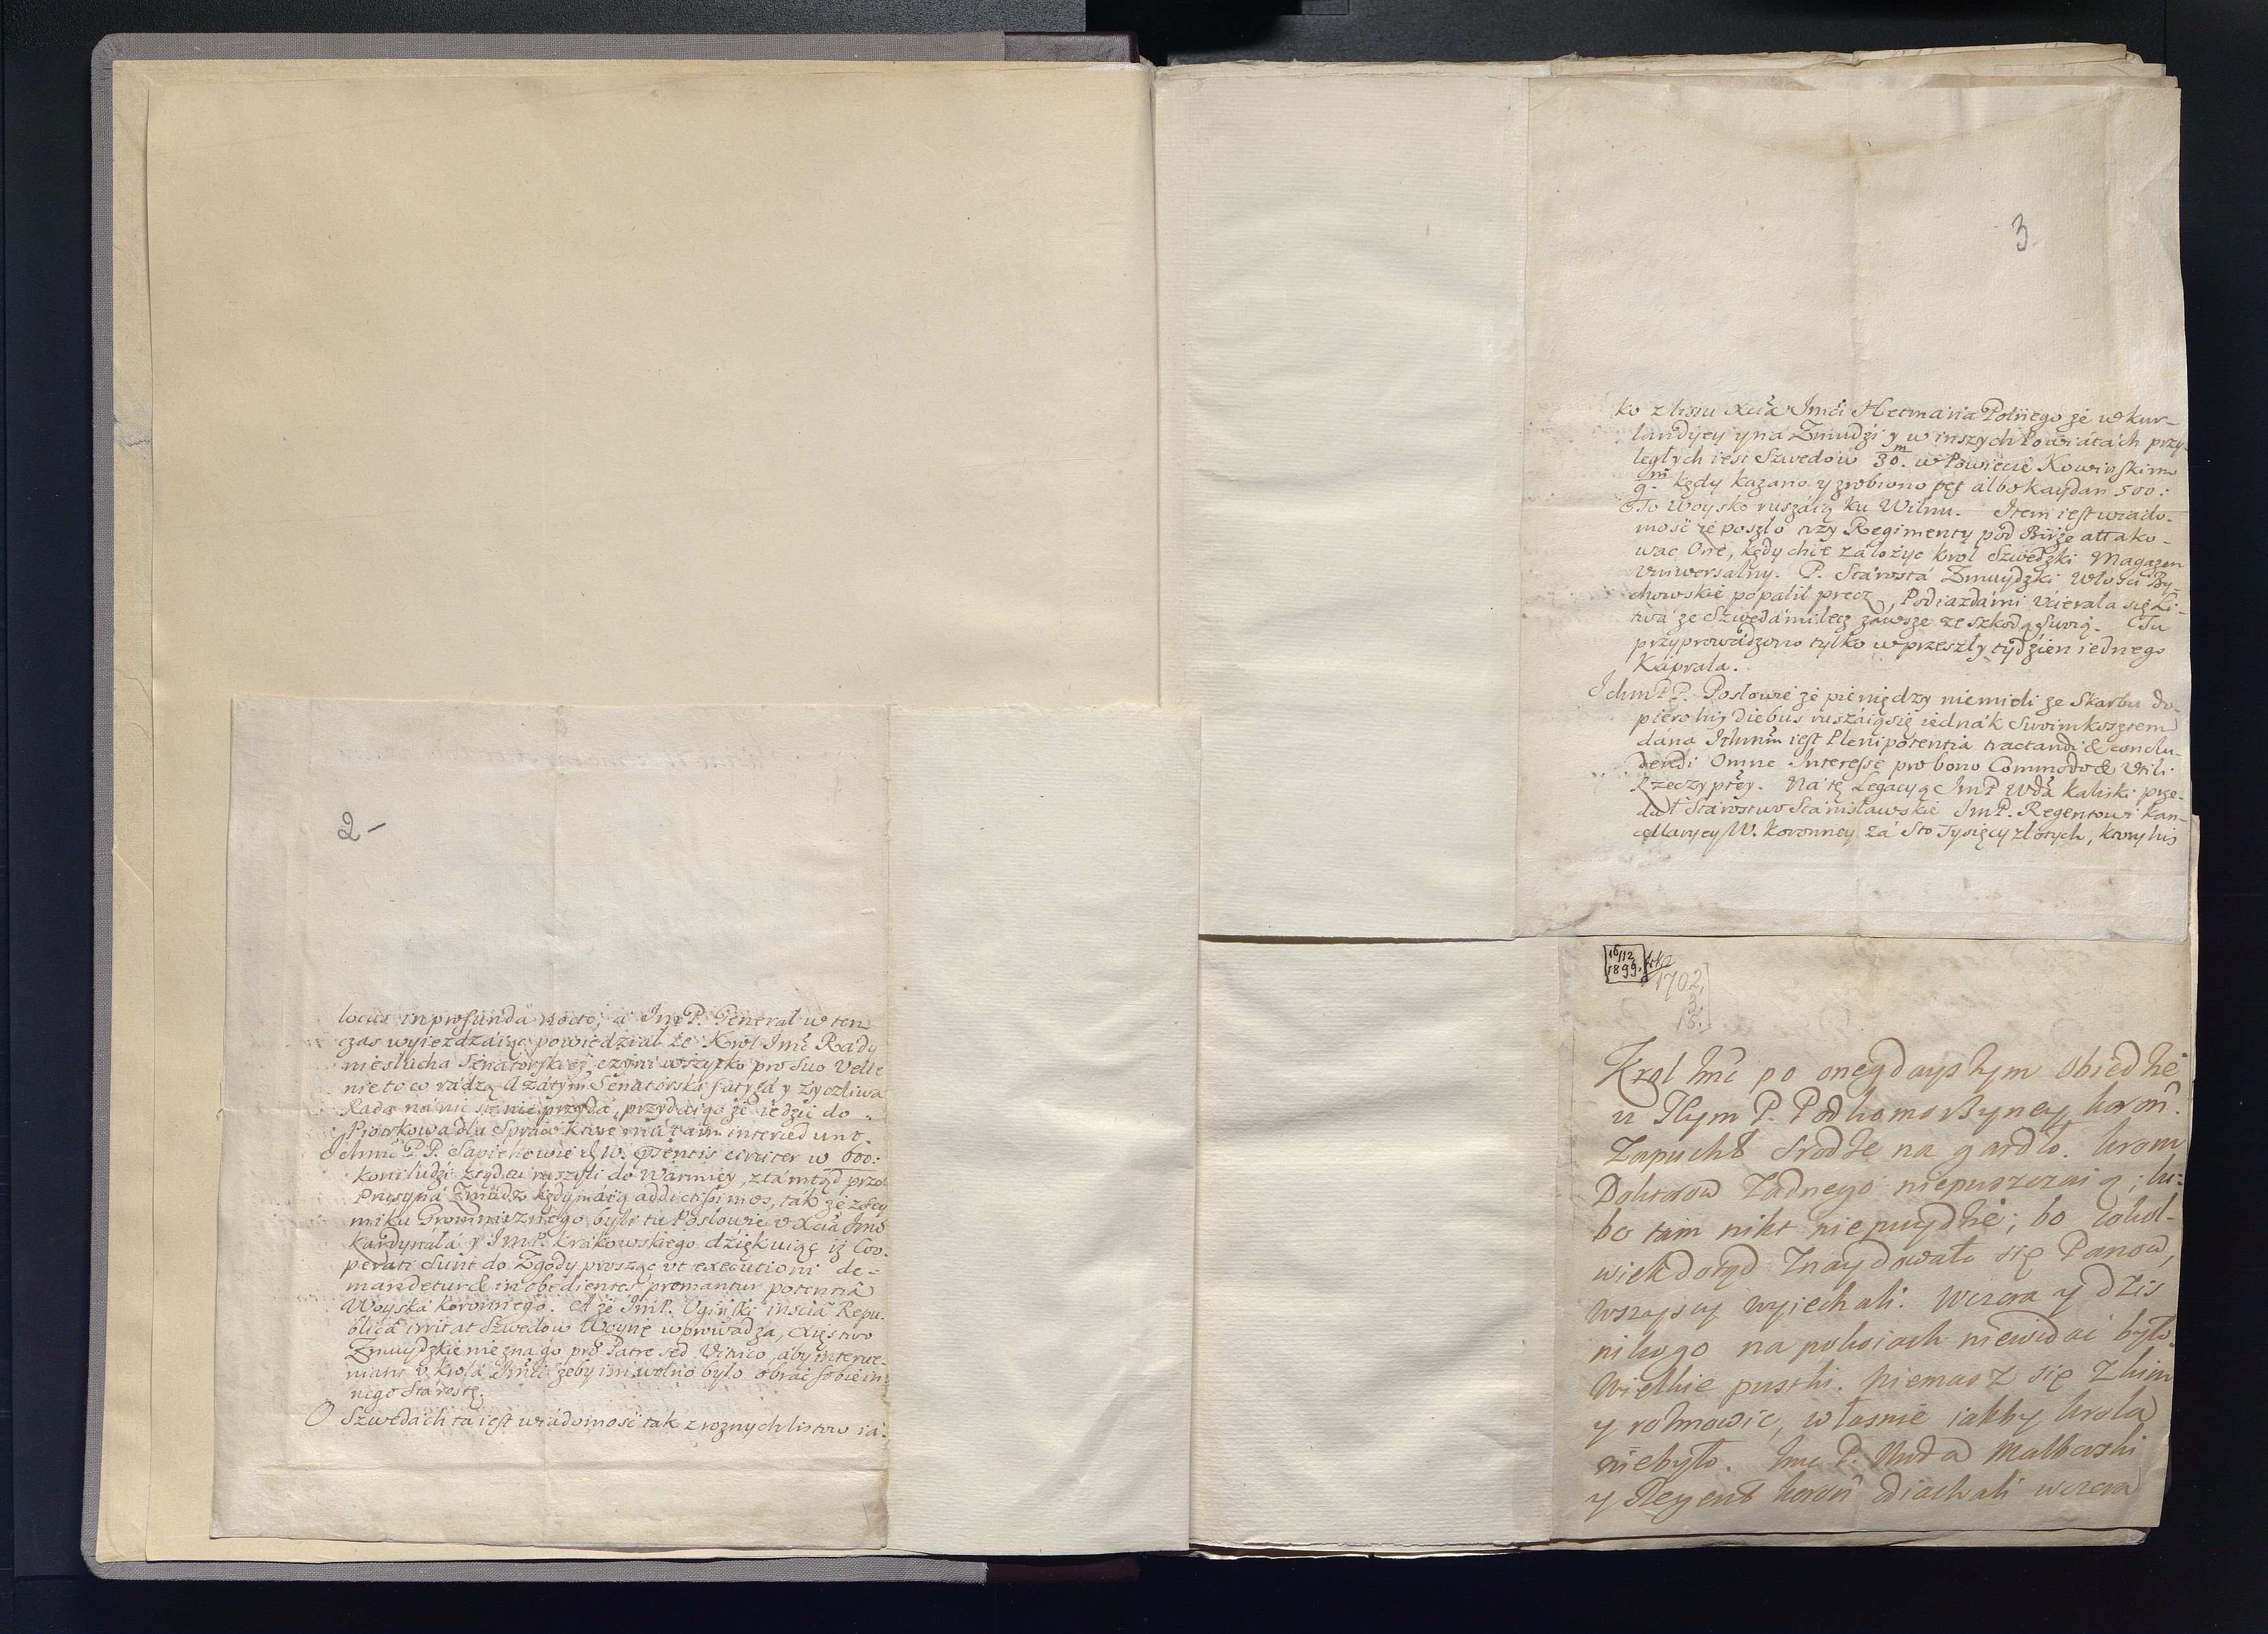 2-
locus in profunda nocte; a Im P. Generał w ten
czas wyieżdzaiąc powiedział że Krol Imć Rady
niesłucha Senatorskiey, czyni wszytko pro suo Velle
nie to co radzą. A zátym Senatorska fatygá y życzliwa
Rada ná nic się nie przyda, przydaiąc że iedzie do
Piotrkowa dla Spraw ktore mu tam interced unt.
Ichmć P.P. Sapiehowie W. circiter w 600:
koni ludzi ztąd tu ruszyli do Warmiey, ztámtąd przez
Prusy ná Zmudz kędy máią addictissimos, ták że z Sey
miku Gromnicznego byli tu Posłowie v Xcia Imć
Kárdynałá y Im P. Krakowskiego dziękuiąc iż Coo-
perati sunt do Zgody prosząc vt executioni de-
mandetur & inobedientes premantur potentiâ
Woyska Koronnego. A że Im P. Oginski inscia Repu-
blica irritat Szwedow Woynę wprowadza, Xięstwo
Zmuydzkie nie zna go pro Patre sed Vitrico, aby interve-
niant v Krolá Imci żeby im wolno było obrać sobie in-
nego Starostę.
O Szwedách tá iest wiadomość tak z roznych listow iá-
3
ko z listu Xciá Imći Hetmaná Polnego że w Kur-
landyey y ná Zmudzi y w inszych Powiátách przy-
ległych iest Szwedow 30.m w Powiecie Kowinskim
9.m kędy kazano y zrobiono pęt álbo Kaydan 500:
To Woysko ruszáią ku Wilnu. Item iest wiado-
mość że poszło trzy Regimenty pod Birże attako-
wac One, kędy chce záłożyc krol Szwedzki Magazen
Vniwersalny. P. Stárostá Zmuydzki Włości By-
chowskie popalił precz, Podiazdámi vcierała się Li-
twá ze Szwedámi lecz záwsze ze szkodą swoią. Tu
przyprowádzono tylko w przeszły tydzien iednego
Káprala.
Ichm PP. Posłowie że pieniędzy niemieli ze Skarbu do-
piero his diebus ruszáią się iednák swoim kosztem
dána Ichmm iest Plenipotentia tractandi & conclu-
dendi Omne Interesse pro bono Commodo & Vtili
Rzeczyptey. Ná tę Legacyą Im P Wdá kaliski prze-
dał Stárostwo Stánisławskie Im P. Regentowi Kan-
cellaryey W. Koronney zá Sto Tysięcy złotych, ktory his
16/12
1899.
1702,
3.
15.
Krol Imć po onegdayszym obiedzie
u Ieym P. Podkomorzyney koroń.
Zapuchł srodze na gardło. krom
Doktorow Zadnego niepuszczaią; lu-
bo tam nikt nieprzydzie; bo cokol-
wiek dotąd Znaydowało się Panow,
wszyscy wyiechali. Wczora y dzis
nikogo na pokoiach niewidac było.
Wielkie pustki. niemasz się z kim
y rozmowić, własnie iakby krola
niebyło. Imć P. Wda Malborski
y Regent koroń odiachali wczora